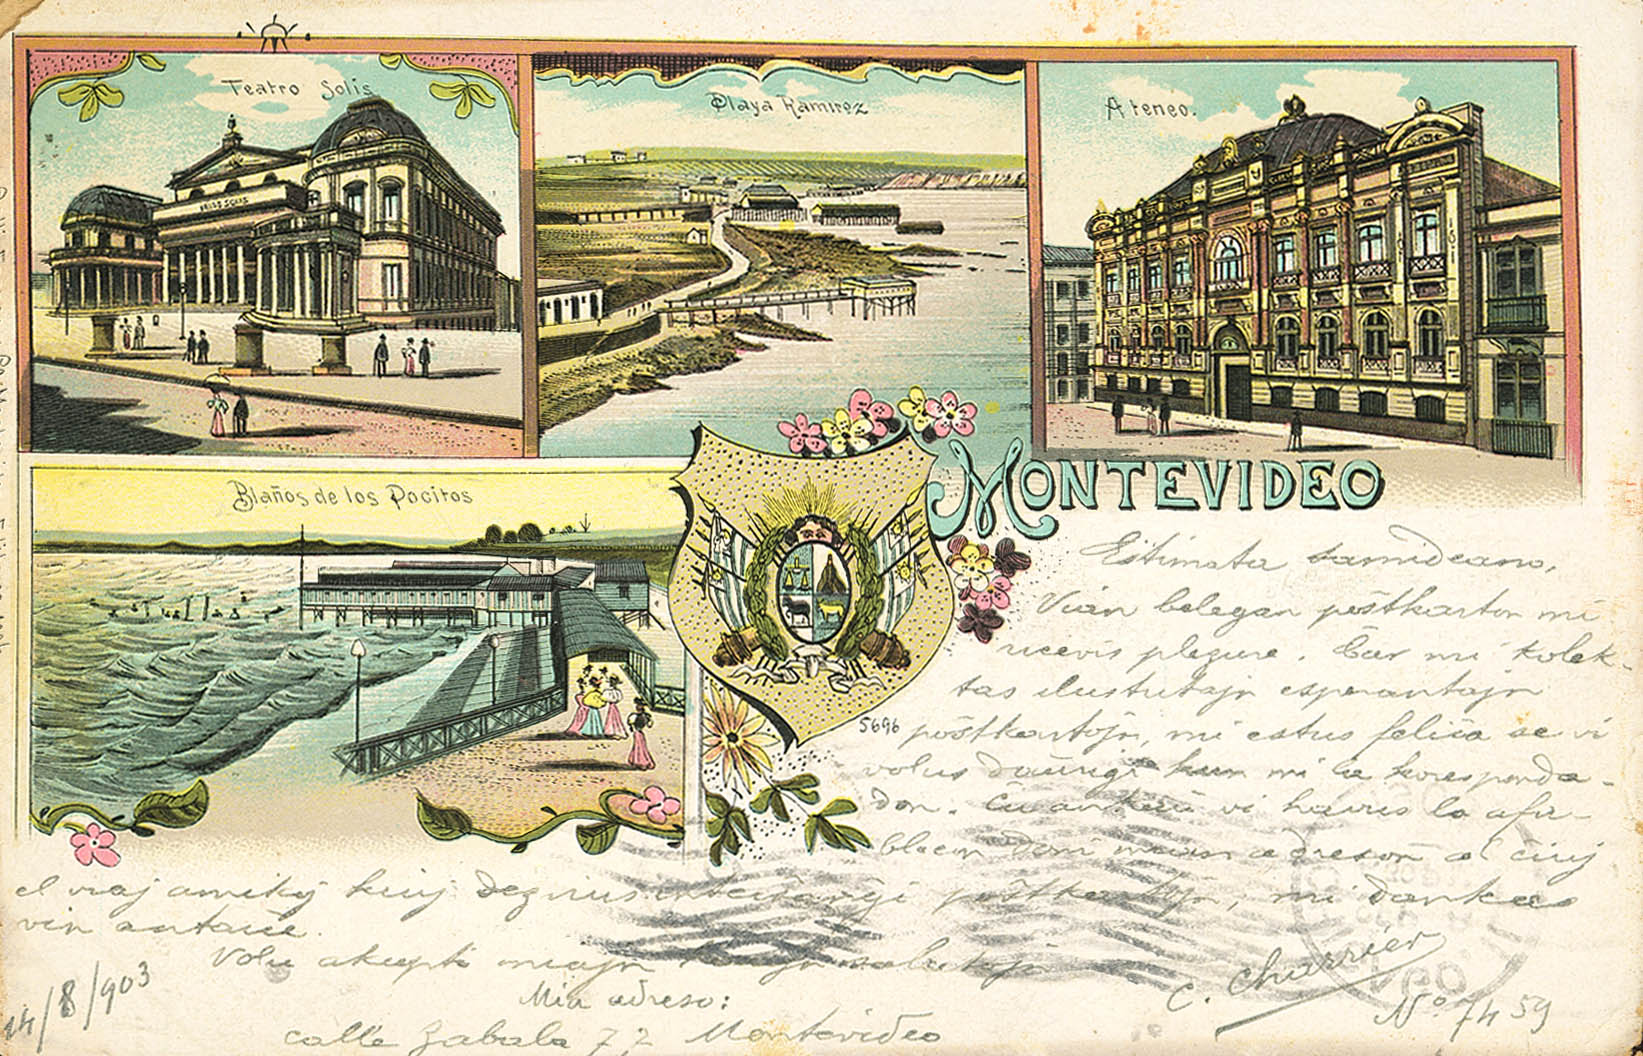 Teatro Solis
Playa Ramirez
Ateneo.
Blaños de los Pocitos
MONTEVIDEO
5696
Estimata samideano,
Vian belegan poŝtkarton mi
ricevis plezure. Ĉar mi kolek-
tas ilustritajn esperantajn
poŝtkartojn, mi estus feliĉa se vi
volus daŭrigi kun mi la koresponda-
don. Ĉu ankaŭ vi havus la afa-
blecon doni mian adreson al ĉiuj
el viaj amikoj kiuj dezirus interŝanĝi poŝtkartojn, mi dankas
vin antaŭe.
Volu akcepti miajn salutojn
C. Charrier
Mia adreso:
calle Zabala 72 Montevideo
No. 7459
14/8/903